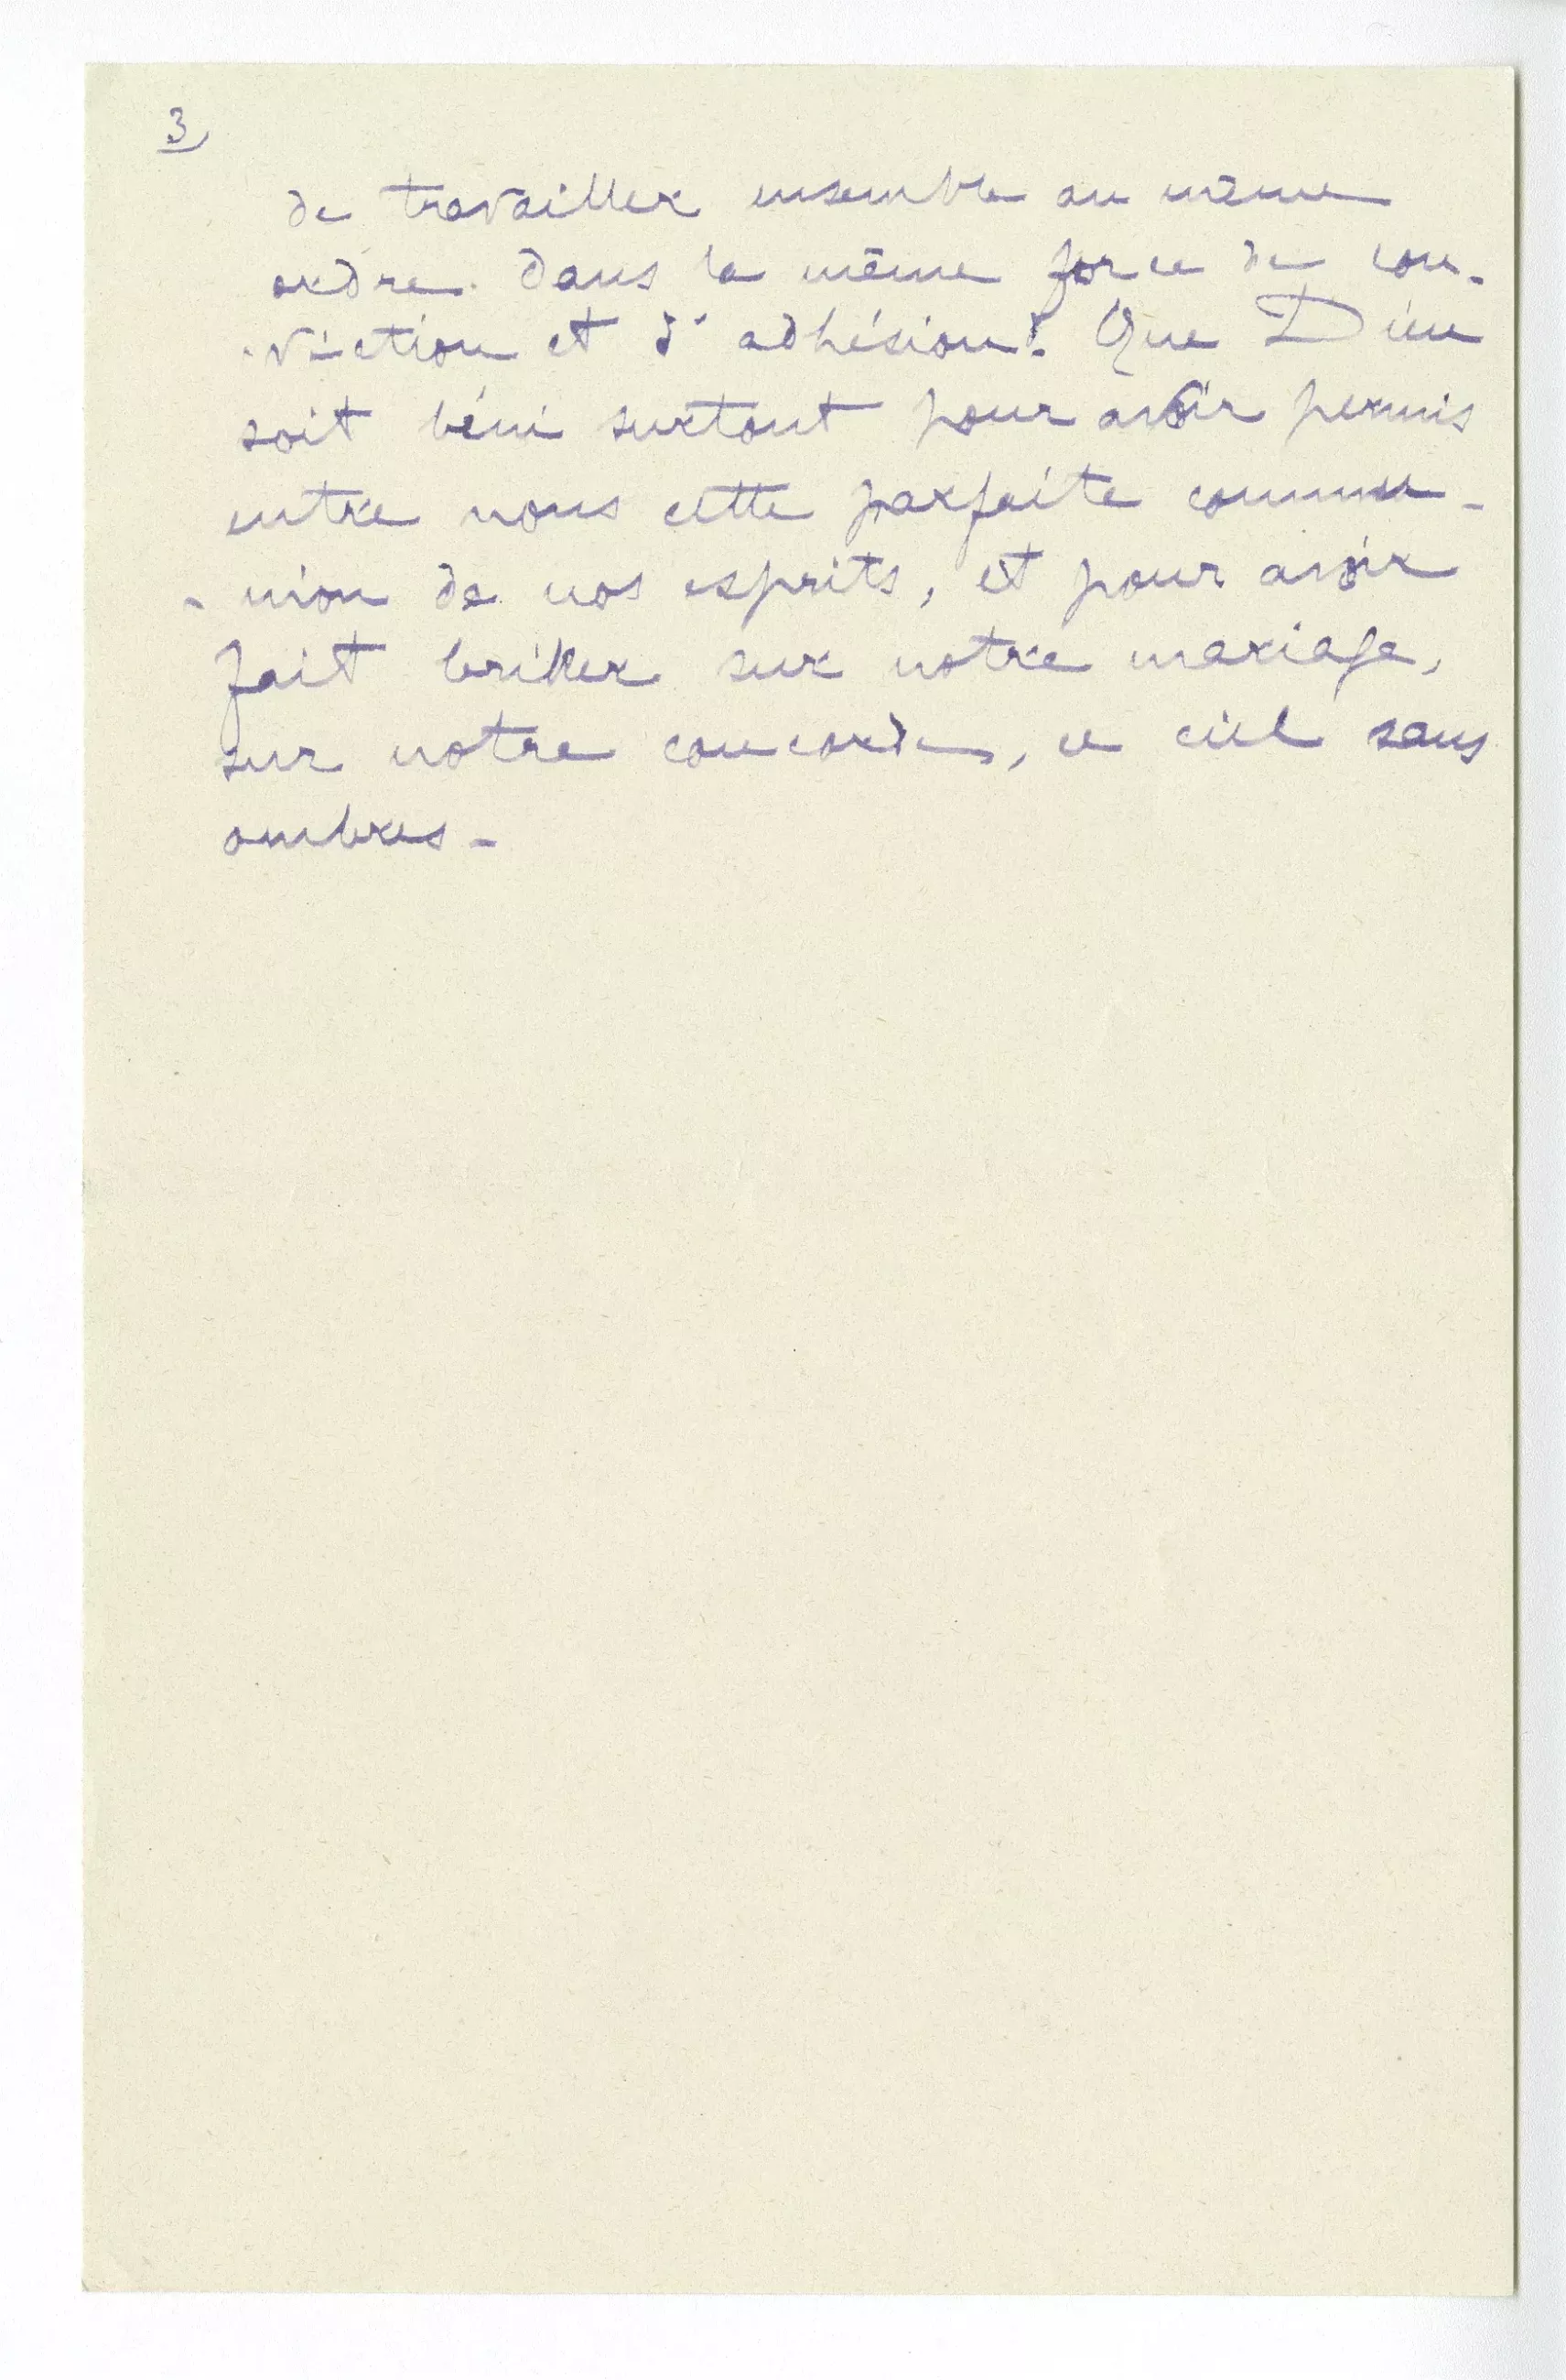 3
de travailler ensemble au même
ordre. dans la même force de con-
-viction et d'adhésion! Que Dieu
soit béni surtout pour avoir permis
entre nous cette parfaite commu-
-nion de nos esprits, et pour avoir
fait briller sur notre mariage,
sur notre concorde, ce ciel sans
ombres-